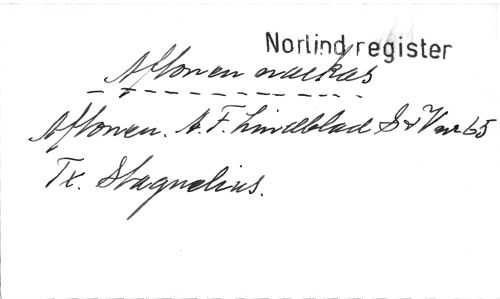 Norlind register
Aftonen nalkas
Aftonen. A. F. Lindblad S & V nr 65
Tx. Stagnelius.